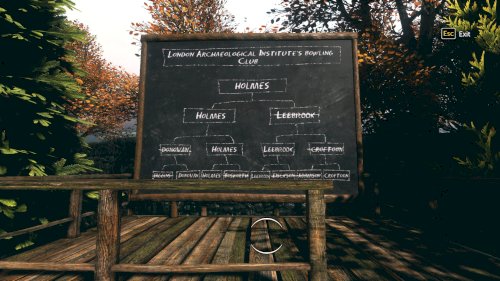 Esc Exit
London Archaeological Institute's bowling
Club
Holmes
Holmes Leebrook
Donovan Holmes Leebrook Croftoon
Donovan Holmes Leebrook Croftoon